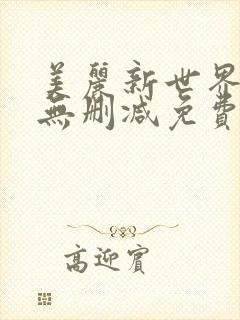 美麗新世界
無刪减免費
高迎賓